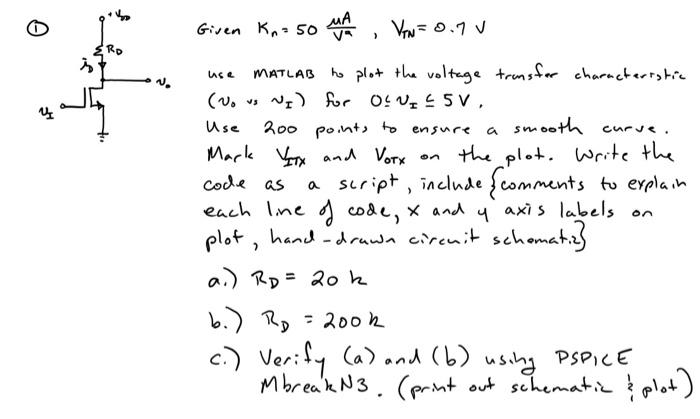 ① +V_DD
R_D
i_D
v_o
v_I
Given K_n = 50 μA/V², V_TN = 0.7 V
use MATLAB to plot the voltage transfer characteristic
(v_o vs v_I) for 0 ≤ v_I ≤ 5V.
Use 200 points to ensure a smooth curve.
Mark V_ITX and V_OTX on the plot. Write the
code as a script, include {comments to explain
each line of code, x and y axis labels on
plot, hand-drawn circuit schematic}
a.) R_D = 20 k
b.) R_D = 200 k
c.) Verify (a) and (b) using PSPICE
MbreakN3. (print out schematic & plot)